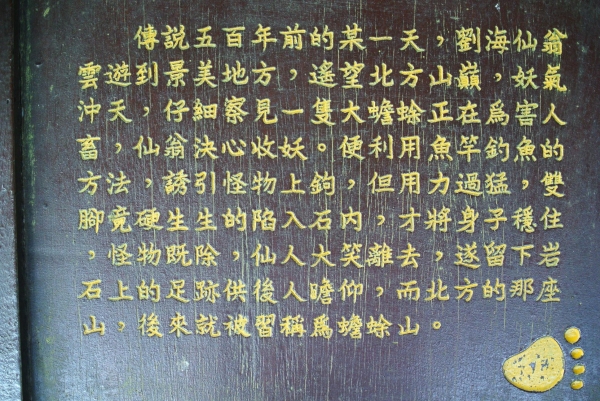 傳說五百年前的某一天，劉海仙翁
雲遊到景美地方，遙望北方山巔，妖氣
沖天，仔細察見一隻大蟾蜍正在為害人
畜，仙翁決心收妖。便利用魚竿釣魚的
方法，誘引怪物上鉤，但用力過猛，雙
腳竟硬生生的陷入石內，才將身子穩住
，怪物既除，仙人大笑離去，遂留下岩
石上的足跡供後人瞻仰，而北方的那座
山，後來就被習稱為蟾蜍山。